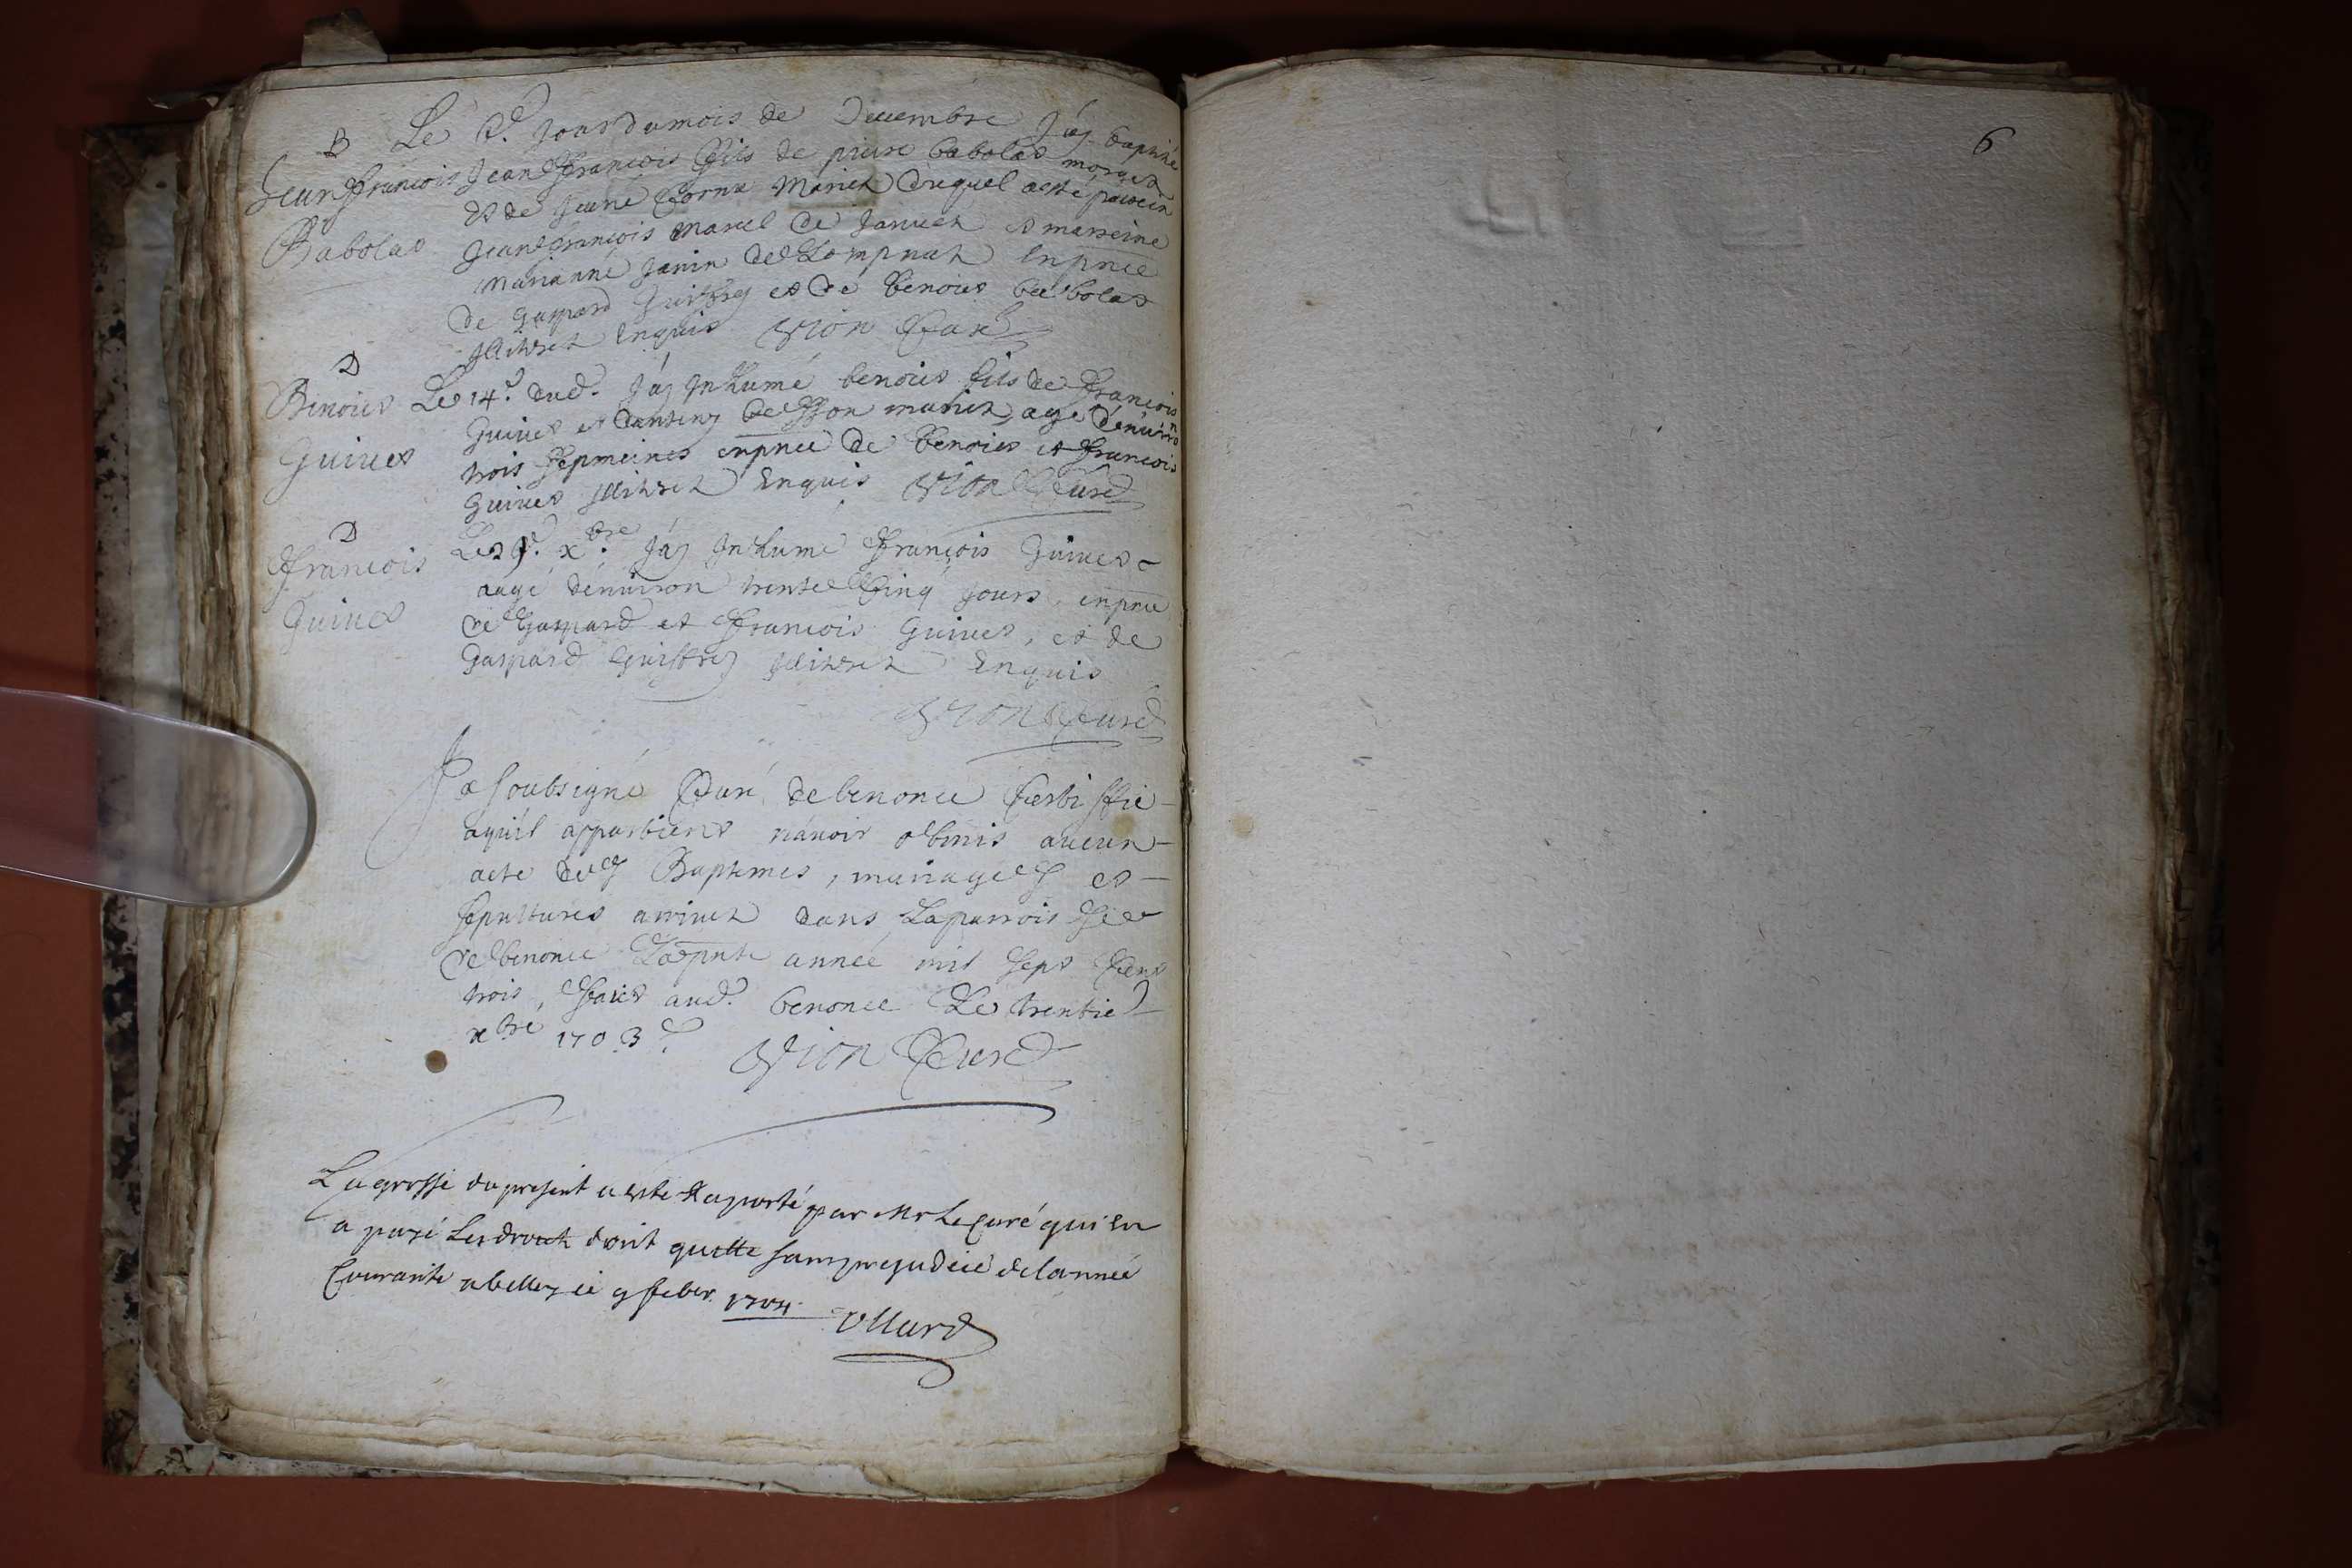 B
Jeanfrancois
Babolat
Le 2e. jour du mois de Decembre jay baptisé
Jean francois fils de pierre babolat
et de Jeane Cornu Mariez duquel a esté parrein
Jeanfrancois marcel de Januez et marreine
Marianne Janin de Lompnaz enpnce
de Gaspard Guiffrey et de benoict babolat
illitrez enquis Vion Curé
D
Benoict
Guinet
Le 14e. dud. jay Inhumé benoict fils de francois
Guinet et mariez, agé d'enuiron
trois sepmeines enpnce de benoict et francois
Guinet illitrez Enquis Vion Curé
D
francois
Guinet
xbre. jay Inhumé francois Guinet
aagé d'enuiron trente Cinq jours enpnce
de Gaspard et francois Guinet, et de
Gaspard Guiffrey illitrez Enquis
Vion Curé
Je soubsigné Curé de benonce Certiffie
aquil appartient n'auoir obmis aucun
acte des Baptemes, mariages et
sepultures arriuez dans La parroisse
de benonce La pnte année mil sept Cent
trois, faict aud. benonce Le trentie
xbre 1703.
Vion Curé
La grosse du present a este Raporté par Mr Le Curé qui en
a payé Les droits dont quitte sans prejudice de lannée
Courante a belley ce 9 feber. 1704.
6